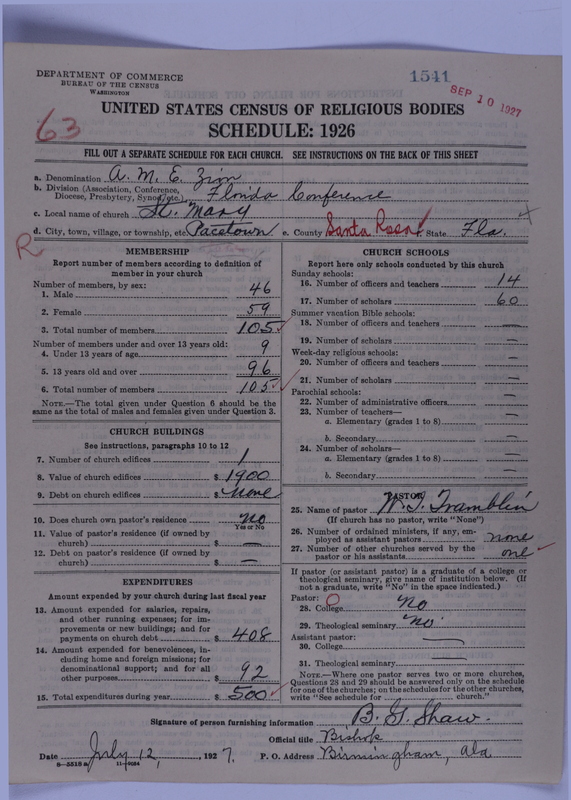 DEPARTMENT OF COMMERCE
BUREAU OF THE CENSUS
WASHINGTON
1541
SEP 10 1927
63
UNITED STATES CENSUS OF RELIGIOUS BODIES
SCHEDULE: 1926
FILL OUT A SEPARATE SCHEDULE FOR EACH CHURCH. SEE INSTRUCTIONS ON THE BACK OF THIS SHEET
a. Denomination A. M. E. Zion
b. Division (Association, Conference, Diocese, Presbytery, Synod, etc.) Florida Conference
c. Local name of church St. Mary
d. City, town, village, or township, etc. Pacetown e. County Santa Rosa f. State Fla.
R
MEMBERSHIP
Report number of members according to definition of
member in your church
Number of members, by sex:
1. Male 46
2. Female 59
3. Total number of members 105
Number of members under and over 13 years old:
4. Under 13 years of age 9
5. 13 years old and over 96
6. Total number of members 105
NOTE.—The total given under Question 6 should be the
same as the total of males and females given under Question 3.
CHURCH BUILDINGS
See instructions, paragraphs 10 to 12
7. Number of church edifices 1
8. Value of church edifices $ 1900
9. Debt on church edifices $ None
10. Does church own pastor's residence No
Yes or No
11. Value of pastor's residence (if owned by
church) $ —
12. Debt on pastor's residence (if owned by
church) $ —
EXPENDITURES
Amount expended by your church during last fiscal year
13. Amount expended for salaries, repairs,
and other running expenses; for im-
provements or new buildings; and for
payments on church debt $ 408
14. Amount expended for benevolences, in-
cluding home and foreign missions; for
denominational support; and for all
other purposes $ 92
15. Total expenditures during year $ 500
CHURCH SCHOOLS
Report here only schools conducted by this church
Sunday schools:
16. Number of officers and teachers 14
17. Number of scholars 60
Summer vacation Bible schools:
18. Number of officers and teachers —
19. Number of scholars —
Week-day religious schools:
20. Number of officers and teachers —
21. Number of scholars —
Parochial schools:
22. Number of administrative officers —
23. Number of teachers—
a. Elementary (grades 1 to 8) —
b. Secondary —
24. Number of scholars—
a. Elementary (grades 1 to 8) —
b. Secondary —
PASTOR
25. Name of pastor W. T. Tramblin
(If church has no pastor, write "None")
26. Number of ordained ministers, if any, em-
ployed as assistant pastors none
27. Number of other churches served by the
pastor or his assistants one
If pastor (or assistant pastor) is a graduate of a college or
theological seminary, give name of institution below. (If
not a graduate, write "No" in the space indicated.)
Pastor:
28. College No
29. Theological seminary No
Assistant pastor:
30. College —
31. Theological seminary —
NOTE.—Where one pastor serves two or more churches,
Questions 28 and 29 should be answered only on the schedule
for one of the churches; on the schedules for the other churches,
write "See schedule for church."
Signature of person furnishing information B. G. Shaw.
Official title Bishop
Date July 12, 1927. P. O. Address Birmingham, Ala
8—5518a 11—9034